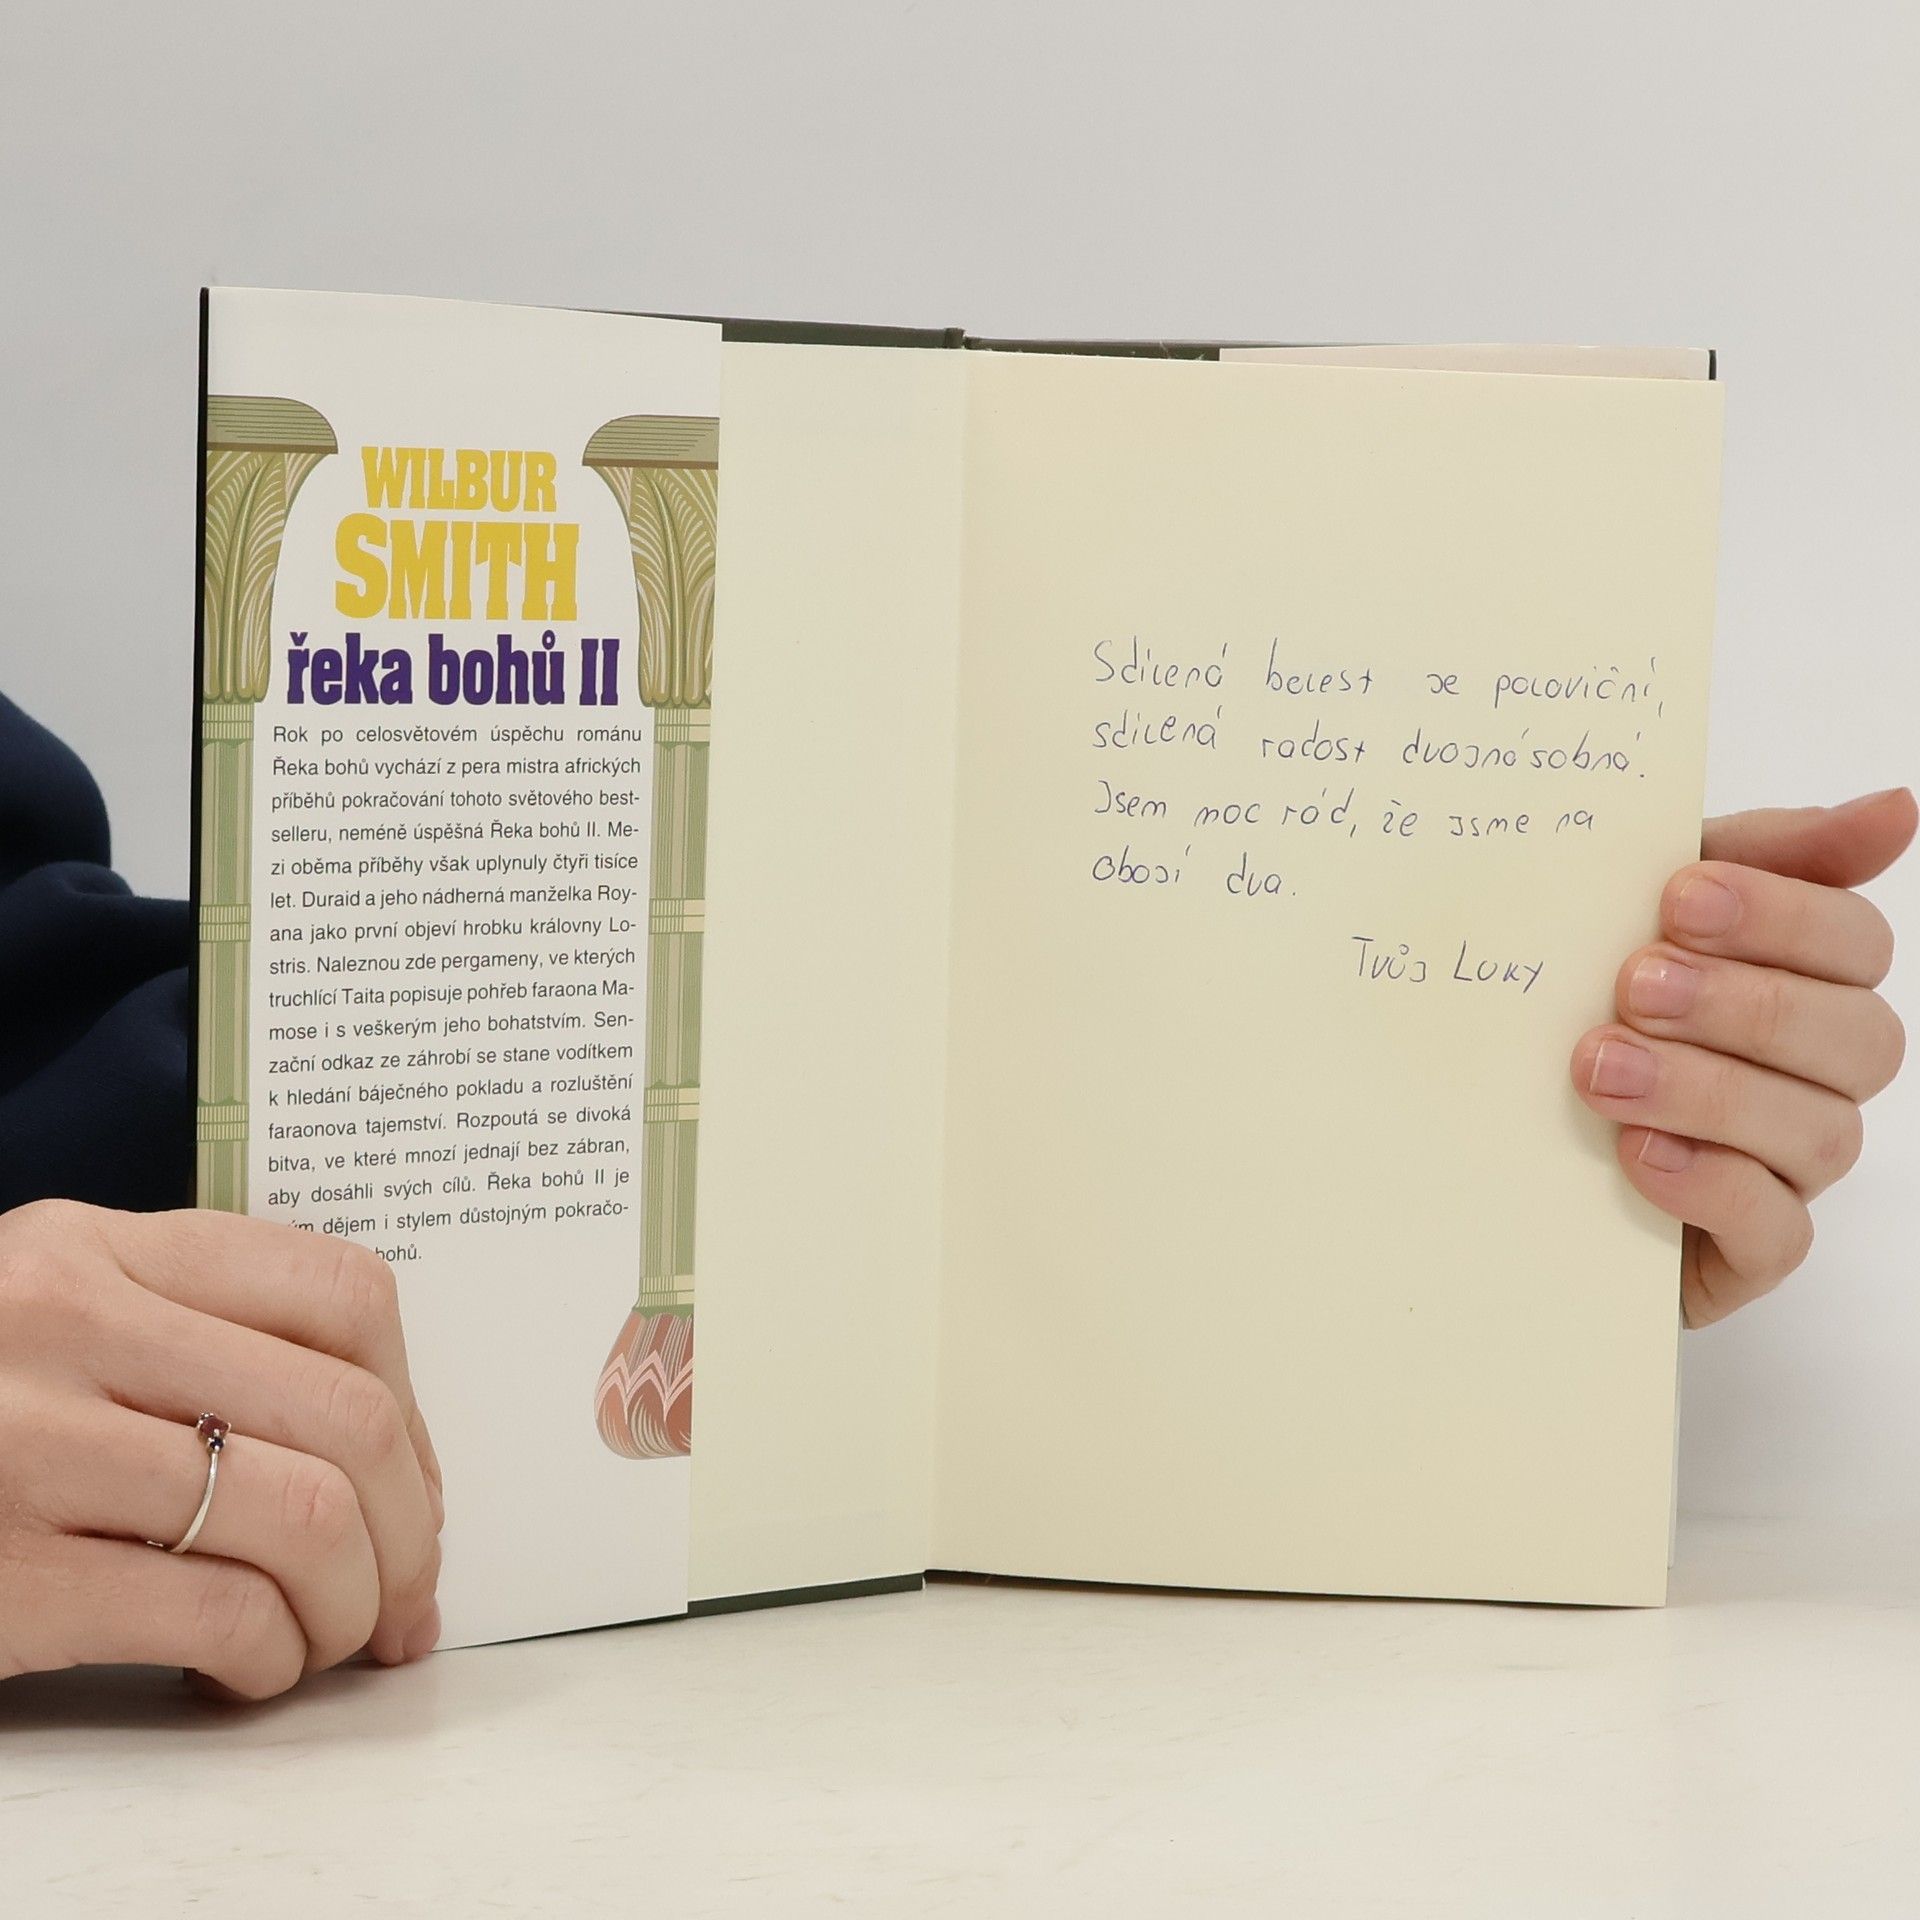 WILBUR
SMITH
řeka bohů II
Rok po celosvětovém úspěchu románu
Řeka bohů vychází z pera mistra afrických
příběhů pokračování tohoto světového best-
selleru, neméně úspěšná Řeka bohů II. Me-
zi oběma příběhy však uplynuly čtyři tisíce
let. Duraid a jeho nádherná manželka Roy-
ana jako první objeví hrobku královny Lo-
stris. Naleznou zde pergameny, ve kterých
truchlící Taita popisuje pohřeb faraona Ma-
mose i s veškerým jeho bohatstvím. Sen-
zační odkaz ze záhrobí se stane vodítkem
k hledání báječného pokladu a rozluštění
faraonova tajemství. Rozpoutá se divoká
bitva, ve které mnozí jednají bez zábran,
aby dosáhli svých cílů. Řeka bohů II je
dějem i stylem důstojným pokračo-
bohů.
Sdílená bolest je poloviční,
sdílená radost dvojnásobná.
Jsem moc rád, že jsme na
obojí dva.
Tvůj Luky